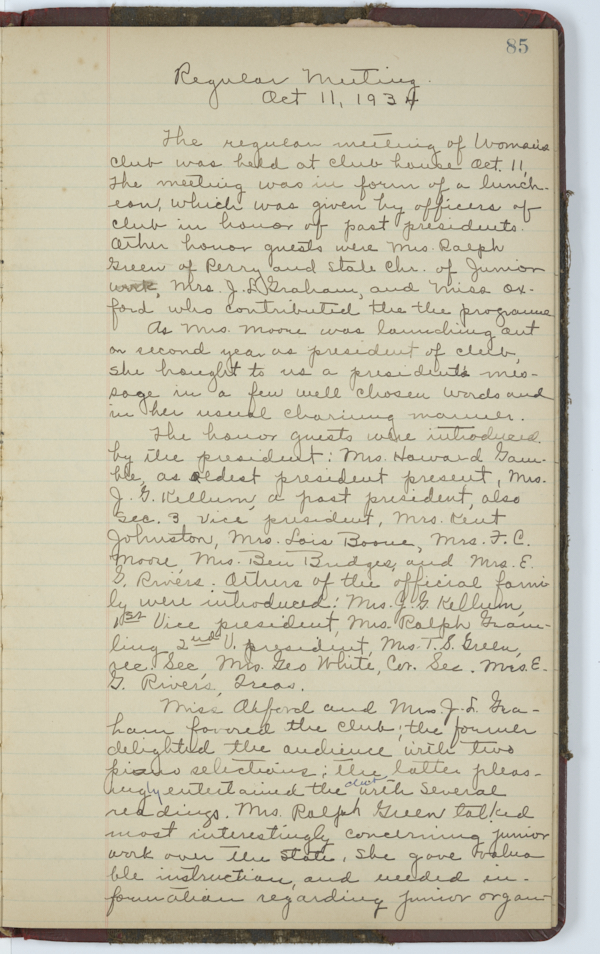 85
Regular Meeting.
Oct 11, 1934
The regular meeting of Woman's
club was held at club house Oct. 11,
The meeting was in form of a lunch-
eon, which was given by officers of
club in honor of past presidents.
Other honor guests were Mrs. Ralph
Green of Perry and State Chr. of Junior
work, Mrs. J. L. Graham, and Miss Ox-
ford who contributed the the programme
As Mrs. Moore was launching out
on second year as president of club,
she brought to us a president's mes-
sage in a few well chosen words and
in her usual charming manner.
The honor guests were introduced
by the president: Mrs. Howard Gam-
ble, as oldest president present, Mrs.
J. G. Kellum, a past president, also
Sec. 3 Vice president, Mrs. Kent
Johnston, Mrs. Lois Boone, Mrs. F. C.
Moore, Mrs. Ben Bridges, and Mrs. E.
G. Rivers. Others of the official fami
ly were introduced: Mrs. J. G. Kellum,
1st Vice president, Mrs. Ralph Gram-
ling 2nd V. president, Mrs. T. S. Green,
rec. Sec, Mrs. Geo White, Cor. Sec. Mrs. E.
G. Rivers, Treas.
Miss Oxford and Mrs. J. L. Gra-
ham favored the club; the former
delighted the audience with two
piano selections; the latter pleas-
ingly entertained the club with several
readings. Mrs. Ralph Green talked
most interestingly concerning junior
work over the state. She gave valua
ble instruction, and needed in-
formation regarding junior organ-